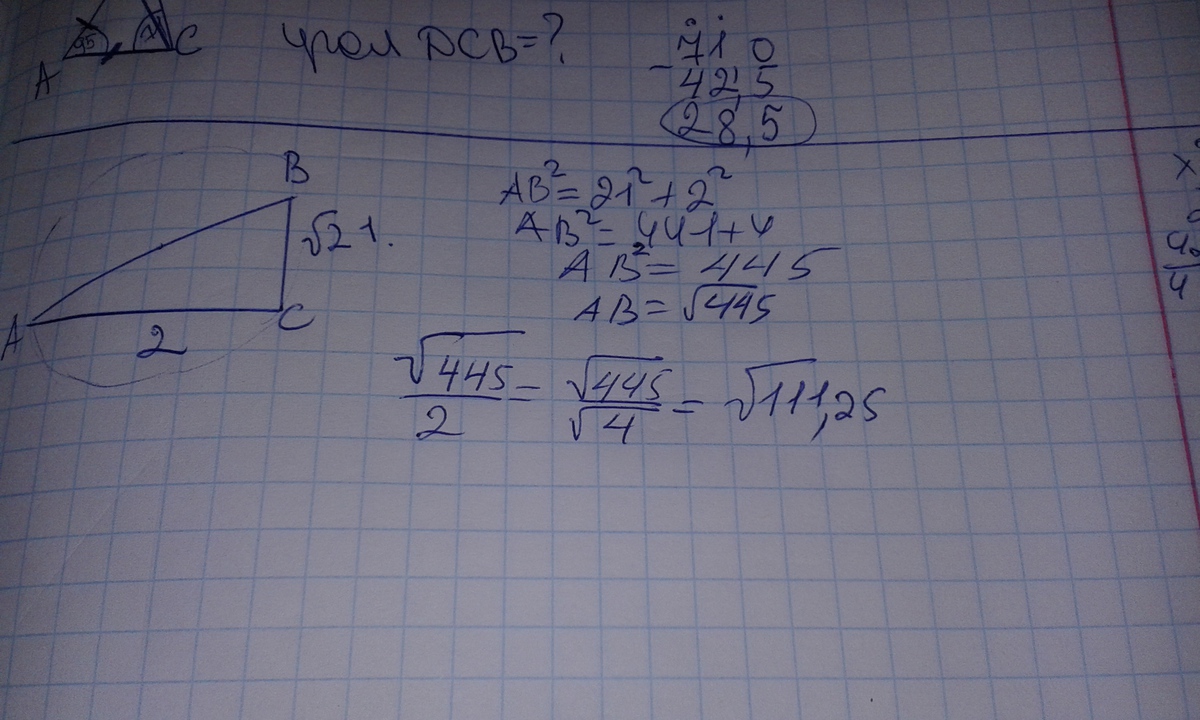 A C угол DCB=?
71 0
- 42,5
28,5
B
√21.
A 2 C
AB²= 21²+2²
AB²= 441+4
AB²= 445
AB= √445
√445/2 = √445/√4 = √111,25
x